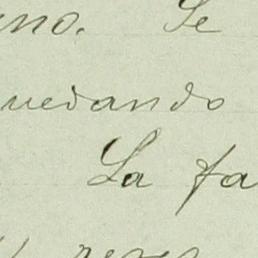 eno. Se
uedando
La fa